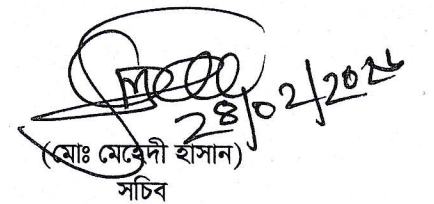 28/02/2024
(মোঃ মেহেদী হাসান)
সচিব